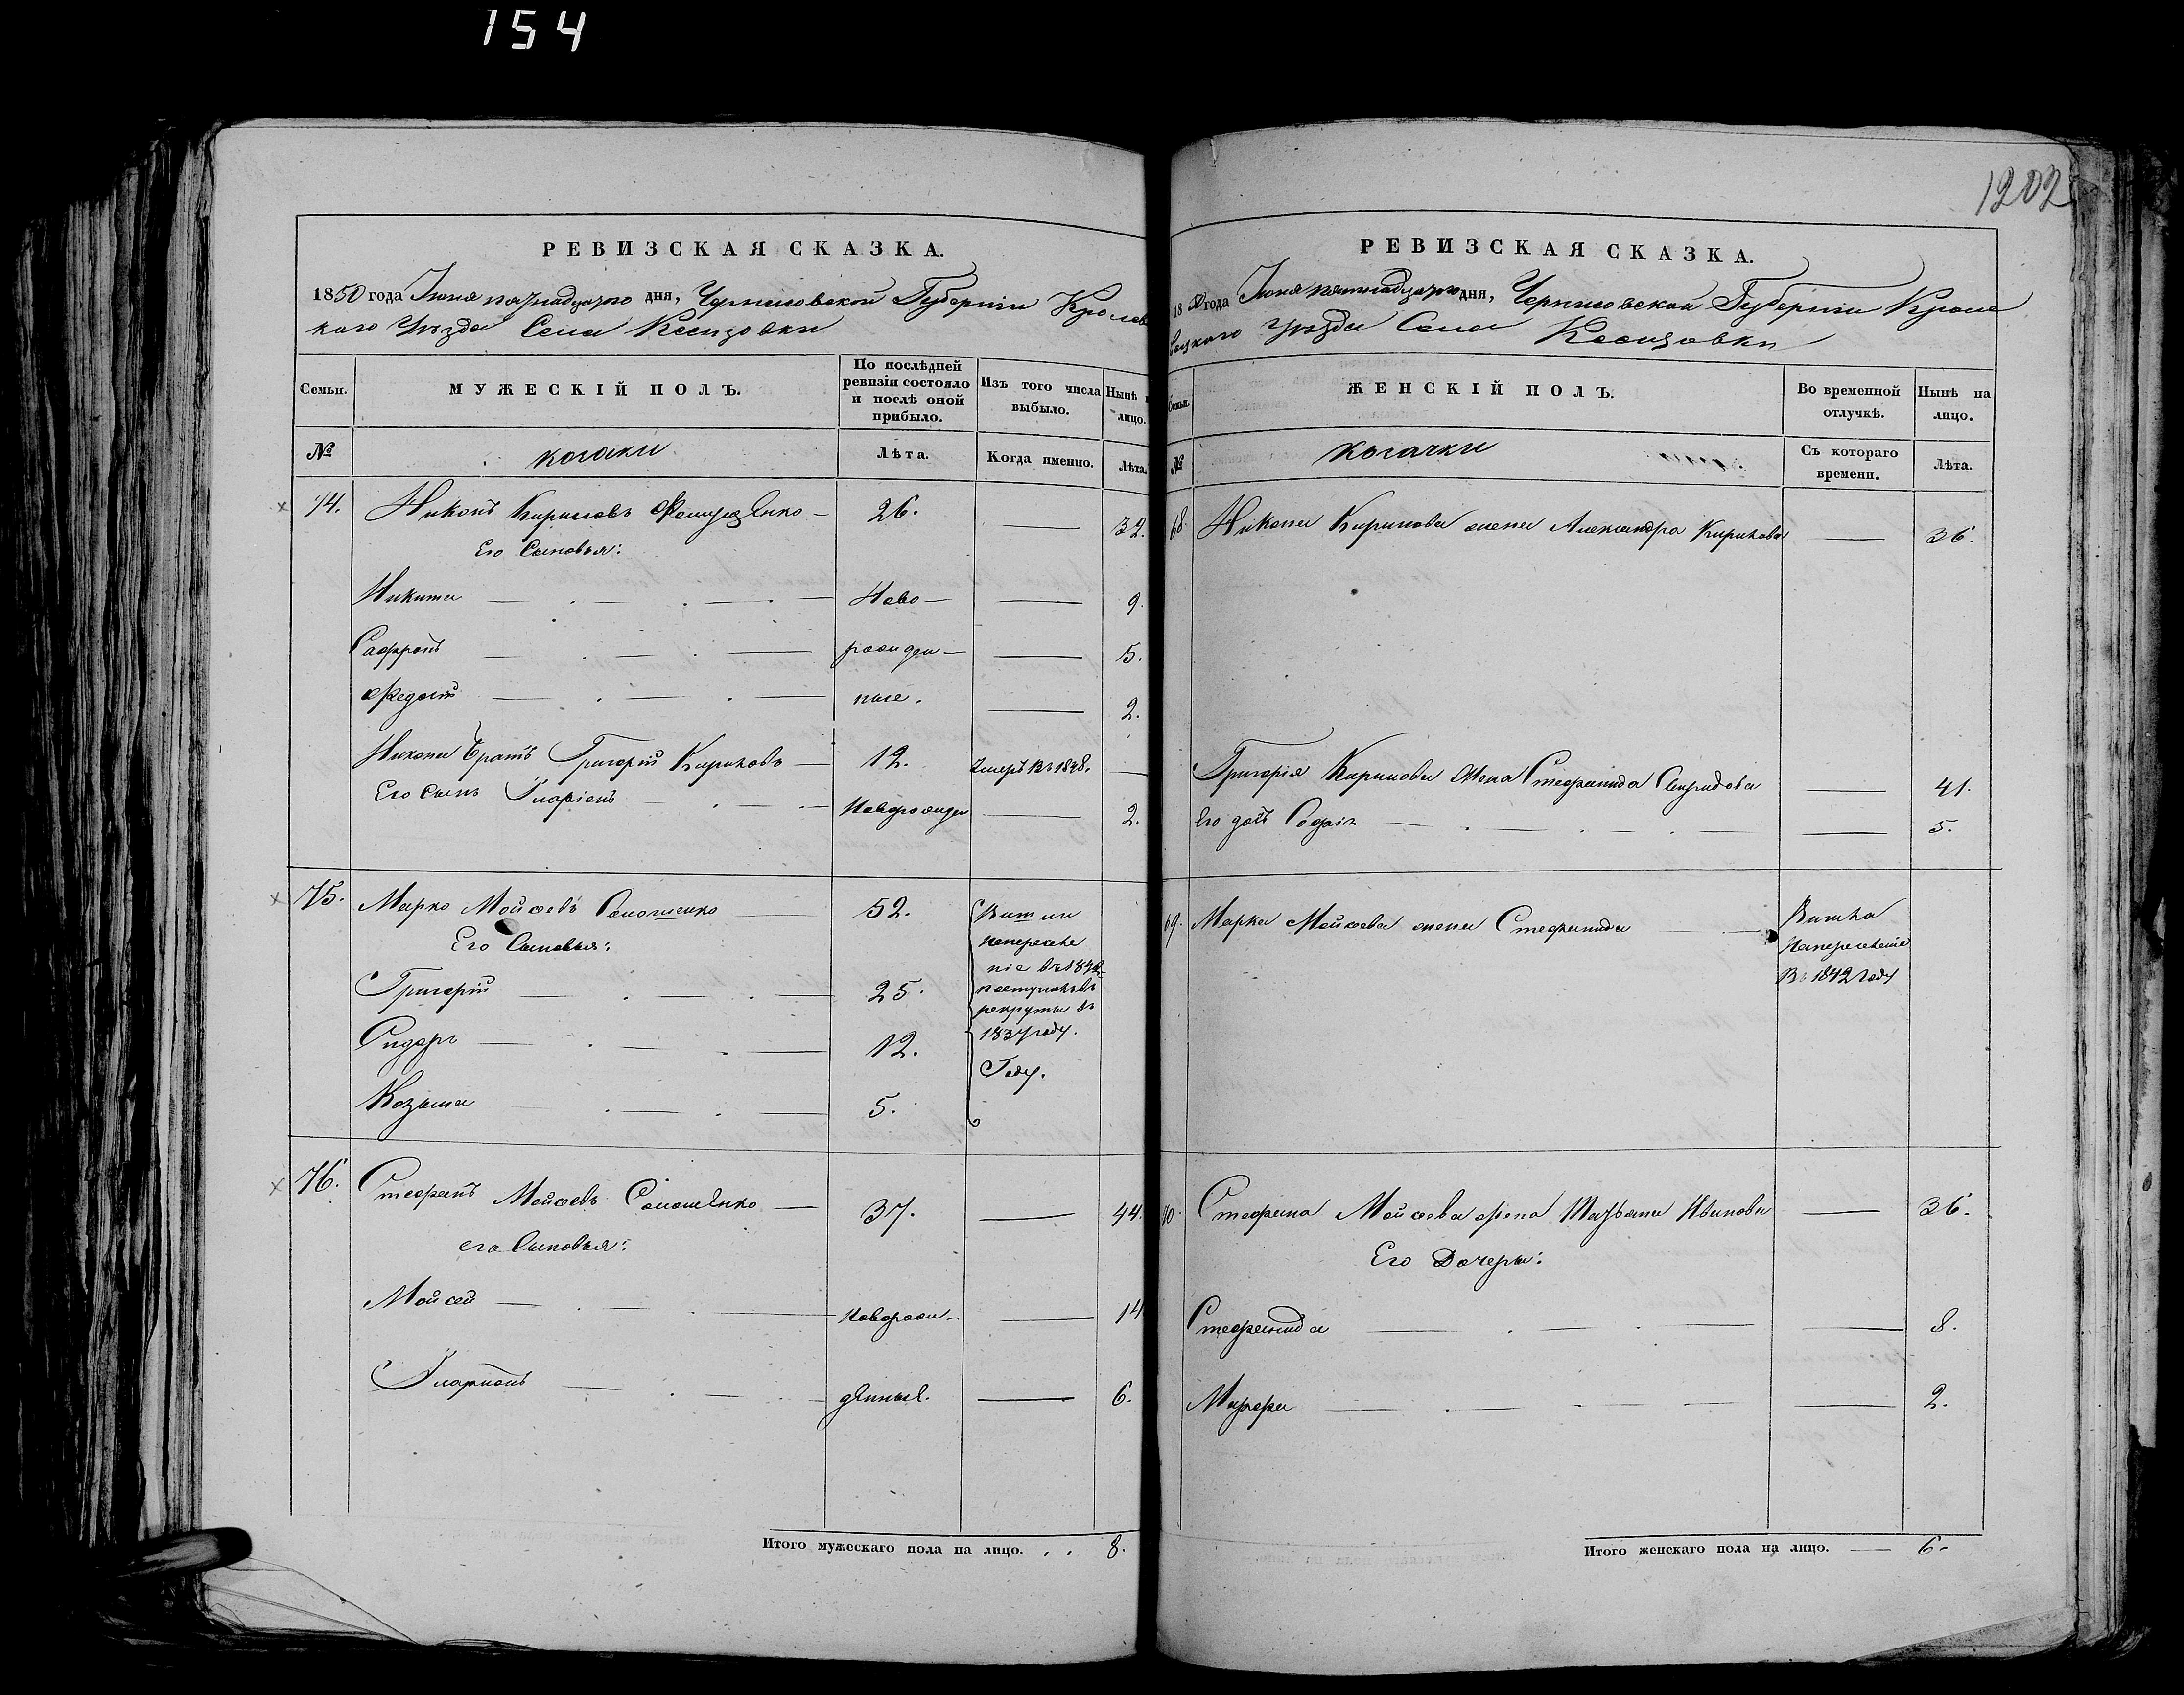 154
1202
РЕВИЗСКАЯ СКАЗКА.
1850 года Іюня пятнадцатого дня, Черниговской Губерніи Кролев
кого Уѣзда Села
Семьи.
МУЖЕСКІЙ ПОЛЪ.
По послѣдней ревизіи состояло и послѣ оной прибыло.
Изъ того числа выбыло.
Нынѣ на лицо.
№
козаки
Лѣта.
Когда именно.
Лѣта.
74. Никонъ Кириловъ 26. — 32.
Его Сыновья:
Никита — Ново — 9.
Сафронъ — рожден — 5.
Федотъ — ные. — 2.
Никона братъ Григорій Кириловъ — 12. Умеръ въ 1848. —
Его Сынъ Иларіонъ — Новорожден — 2.
75. Марко Мойсеевъ Солошенко 52.
Его Сыновья:
Григорій — 25.
Сидоръ — 12.
Козьма — 5.
поступилъ въ
рекруты въ
1837 году.
Году.
76. Стефанъ Мойсеевъ Солошенко — 37. — 44.
его Сыновья:
Мойсей — новорож — 14
Иларионъ — денные. — 6.
Итого мужескаго пола на лицо. . . 8.
РЕВИЗСКАЯ СКАЗКА.
1850 года Іюня пятнадцатого дня, Черниговской Губерніи Кроле
вецкого Уѣзда Села
Семьи.
ЖЕНСКІЙ ПОЛЪ.
Во временной отлучкѣ.
Нынѣ на лицо.
№
козачки
Съ котораго времени.
Лѣта.
68. Никона Кирилова жена Александра Кирилова — 36.
Григорія Кирилова жена Стефанида Свиридова — 41.
Его дочь Софія — 5.
69. Марка Мойсеева жена Стефанида
Въ 1842 году
70. Стефана Мойсеева жена Татьяна Иванова — 36.
Его Дочери:
Стефанида — 8.
Марфа — 2.
Итого женскаго пола на лицо. — 6.